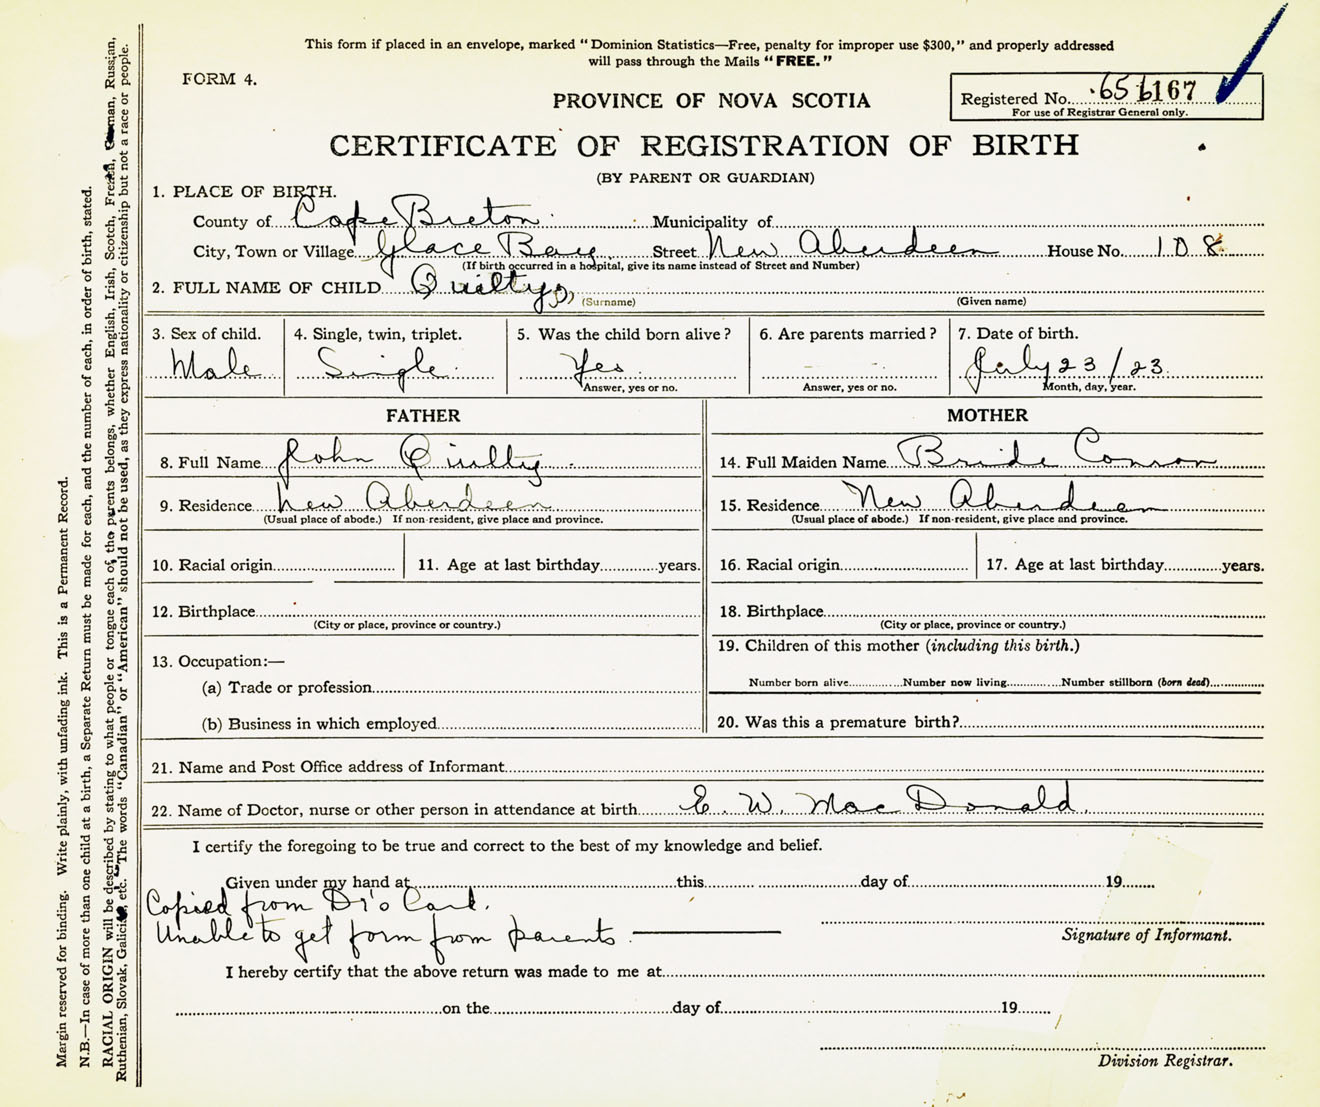 This form if placed in an envelope, marked "Dominion Statistics—Free, penalty for improper use $300," and properly addressed
will pass through the Mails "FREE."
FORM 4.
PROVINCE OF NOVA SCOTIA
Registered No. 656167
For use of Registrar General only.
CERTIFICATE OF REGISTRATION OF BIRTH
(BY PARENT OR GUARDIAN)
1. PLACE OF BIRTH.
County of Cape Breton Municipality of
City, Town or Village Glace Bay Street New Aberdeen House No. 108
(If birth occurred in a hospital, give its name instead of Street and Number)
2. FULL NAME OF CHILD Quilty
(Surname) (Given name)
3. Sex of child. 4. Single, twin, triplet. 5. Was the child born alive? 6. Are parents married? 7. Date of birth.
Male Single Yes July 23/23
Answer, yes or no. Answer, yes or no. Month, day, year.
FATHER MOTHER
8. Full Name John Quilty 14. Full Maiden Name Bride Conron
9. Residence New Aberdeen 15. Residence New Aberdeen
(Usual place of abode.) If non-resident, give place and province. (Usual place of abode.) If non-resident, give place and province.
10. Racial origin 11. Age at last birthday years. 16. Racial origin 17. Age at last birthday years.
12. Birthplace 18. Birthplace
(City or place, province or country.) (City or place, province or country.)
19. Children of this mother (including this birth.)
13. Occupation:—
(a) Trade or profession Number born alive Number now living Number stillborn (born dead)
(b) Business in which employed 20. Was this a premature birth?
21. Name and Post Office address of Informant
22. Name of Doctor, nurse or other person in attendance at birth E. W. MacDonald.
I certify the foregoing to be true and correct to the best of my knowledge and belief.
Given under my hand at this day of 19
Copied from Dr's Card.
Unable to get form from parents.
Signature of Informant.
I hereby certify that the above return was made to me at
on the day of 19
Division Registrar.
Margin reserved for binding. Write plainly, with unfading ink. This is a Permanent Record.
N.B.—In case of more than one child at a birth, a Separate Return must be made for each, and the number of each, in order of birth, stated.
RACIAL ORIGIN will be described by stating to what people or tongue each of the parents belongs, whether English, Irish, Scotch, French, German, Russian,
Ruthenian, Slovak, Galician, etc. The words "Canadian" or "American" should not be used, as they express nationality or citizenship but not a race or people.